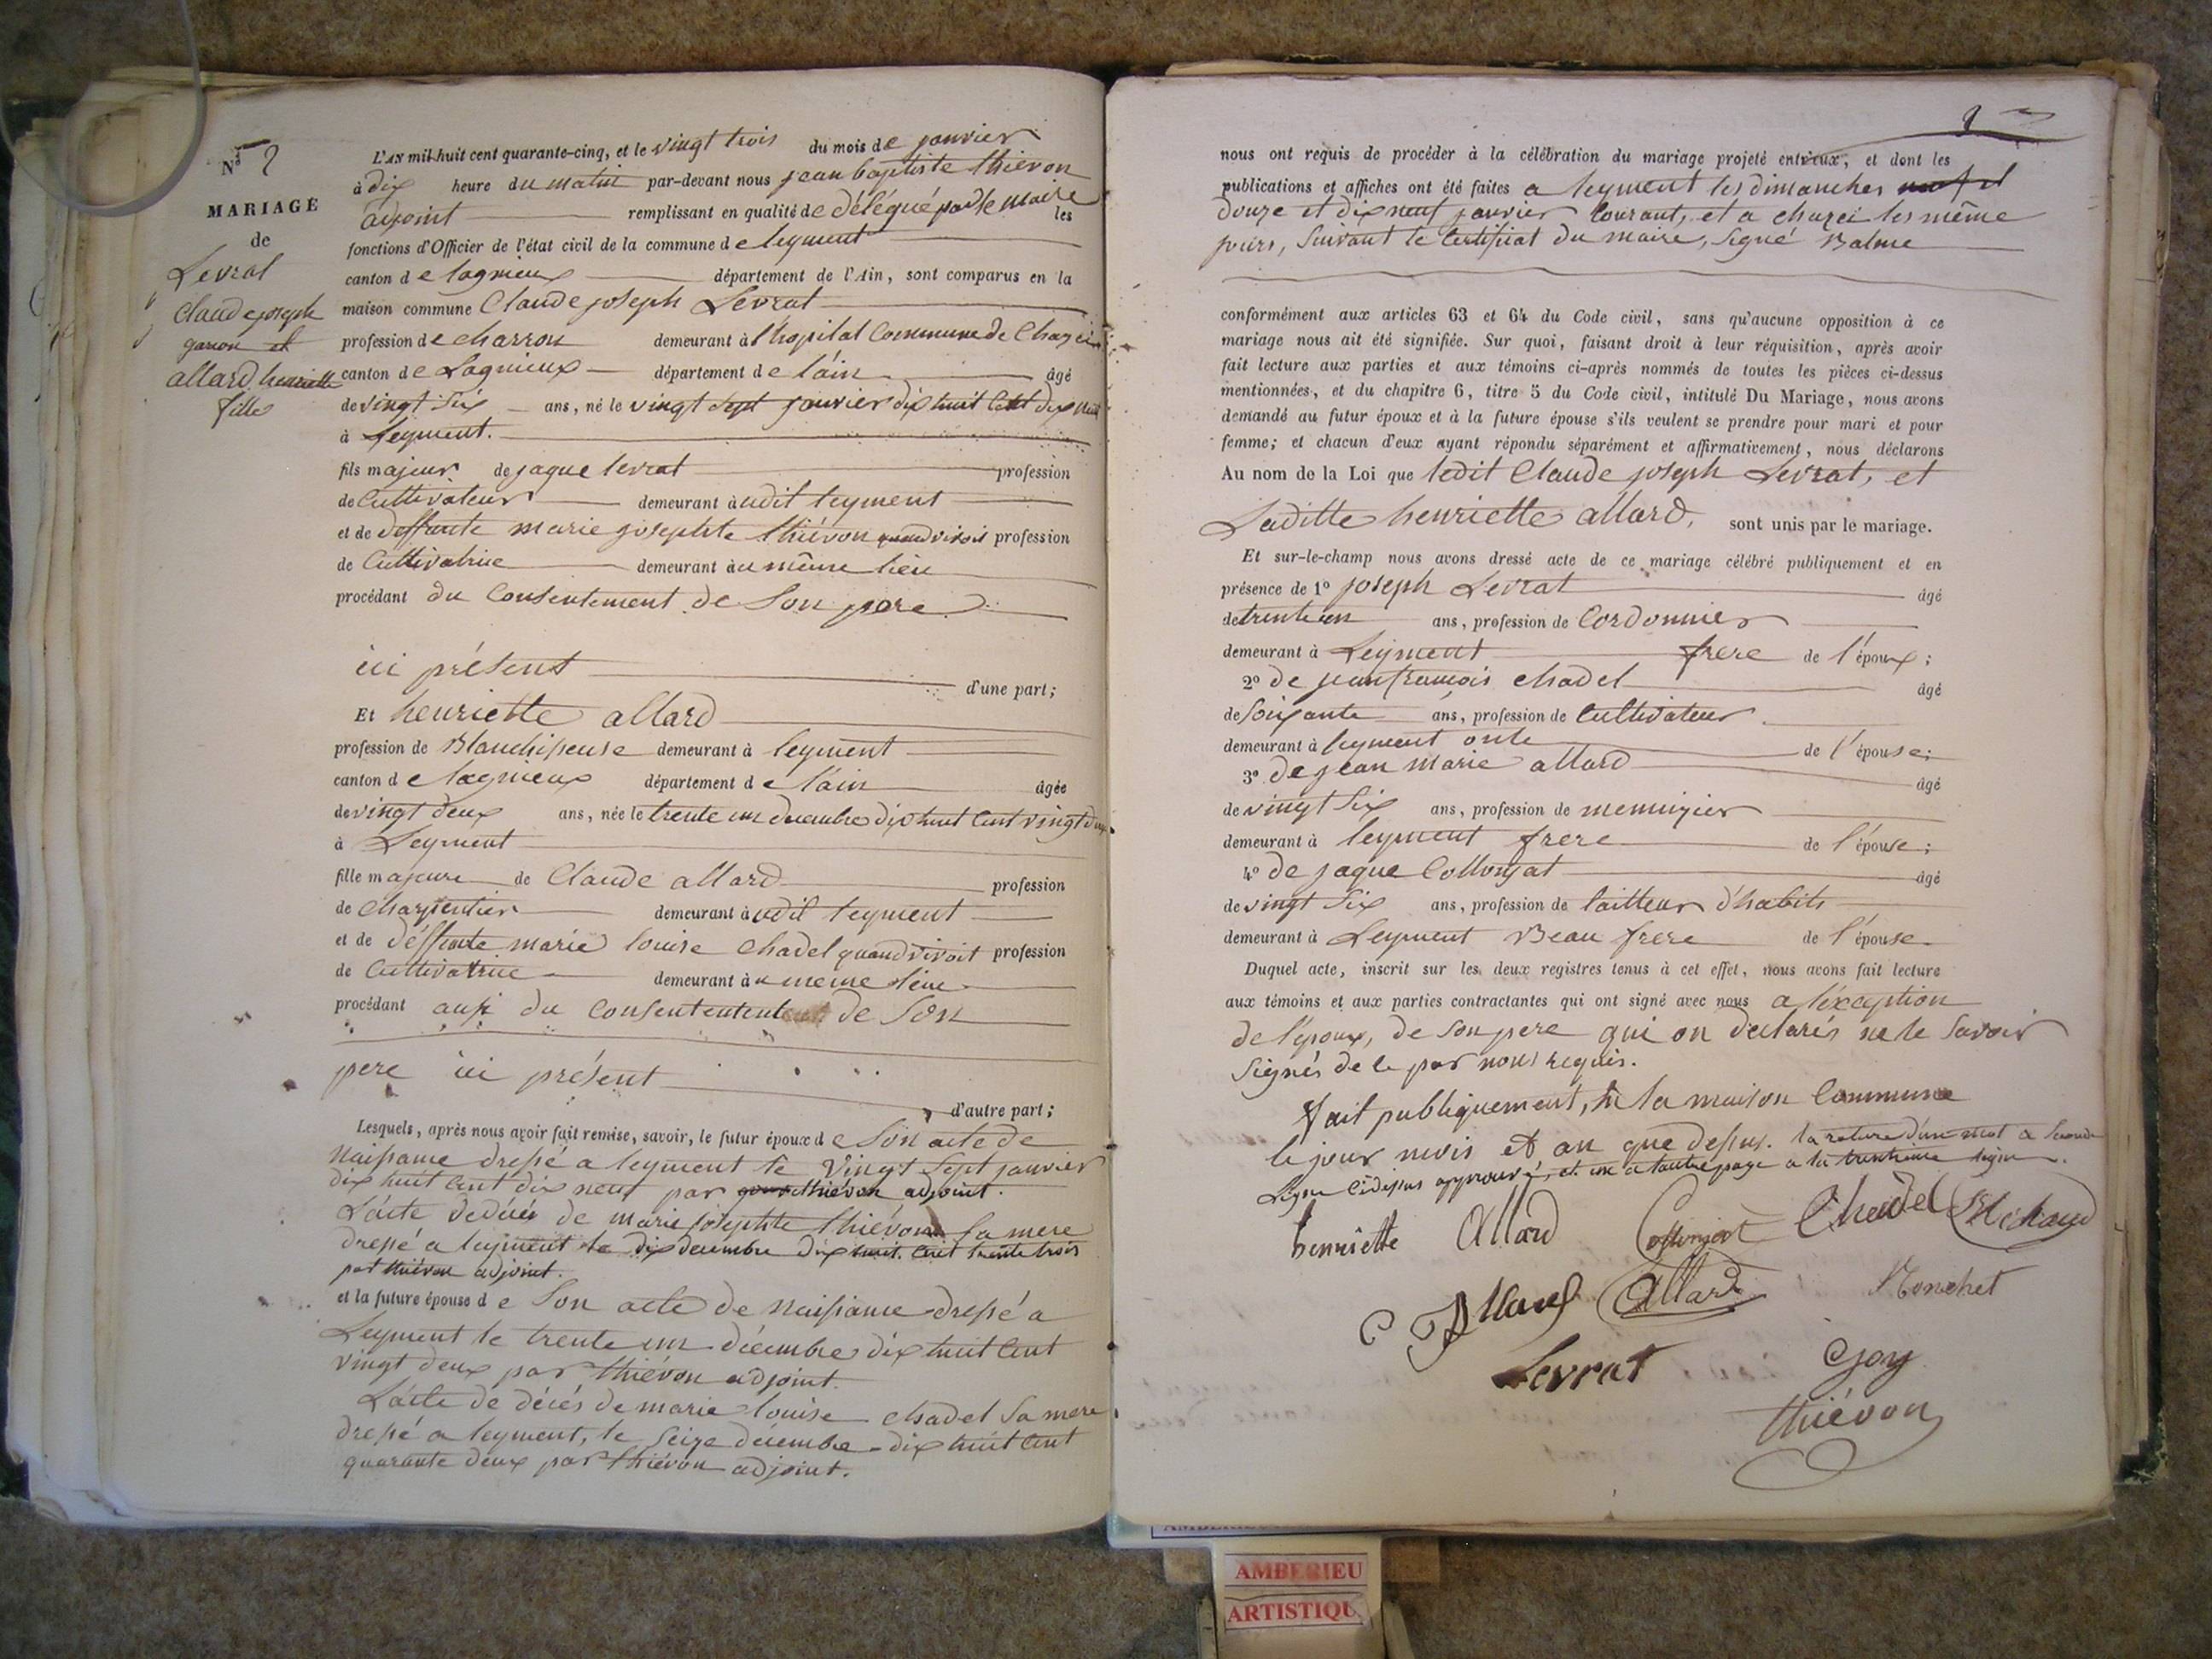 N° 2
MARIAGE
de
Levrat
Claude joseph
garcon et
allard henriette
fille
L'AN mil huit cent quarante-cinq, et le vingt trois du mois de janvier
à dix heure du matin par-devant nous jean baptiste thiévon
adjoint remplissant en qualité de délégué par le maire les
fonctions d'Officier de l'état civil de la commune de leyment
canton de lagnieux département de l'Ain, sont comparus en la
maison commune Claude joseph Levrat
profession de charron demeurant à l'hopital Commune de Chazei
canton de Lagnieux département de l'ain âgé
de vingt six ans, né le vingt sept janvier dix huit Cent dix neuf
à Leyment.
fils majeur de jaque levrat profession
de Cultivateur demeurant audit leyment
et de deffunte marie josephte thiévon quand vivoit profession
de Cultivatrice demeurant au même lieu
procédant du Consentement de Son pere
ici présent d'une part;
Et henriette allard
profession de Blanchisseuse demeurant à leyment
canton de lagnieux département de l'ain âgée
de vingt deux ans, née le trente un decembre dix huit Cent vingt deux
à Leyment
fille majeure de Claude allard profession
de charpentier demeurant audit leyment
et de déffunte marie louise chadel quand vivoit profession
de Cultivatrice demeurant au meme lieu
procédant aussi du Consentement de Son
pere ici présent
d'autre part;
Lesquels, après nous avoir fait remise, savoir, le futur époux de Son acte de
naissance dressé a leyment le Vingt Sept janvier
dix huit Cent dix neuf par thiévon adjoint.
L'acte de décès de marie josephte thiévon Sa mere
dressé a leyment le dix decembre dix huit Cent trente trois
par thiévon adjoint.
et la future épouse de Son acte de naissance dressé a
Leyment le trente un décembre dix huit Cent
vingt deux par thiévon adjoint.
L'acte de décés de marie louise chadel Sa mere
dressé a leyment, le Seize décembre dix huit Cent
quarante deux par thiévon adjoint.
nous ont requis de procéder à la célébration du mariage projeté entr'eux, et dont les
publications et affiches ont été faites a leyment les dimanches
douze et dix neuf janvier Courant, et a chazei les même
jours, Suivant le Certificat du maire, Signé Balme
conformément aux articles 63 et 64 du Code civil, sans qu'aucune opposition à ce
mariage nous ait été signifiée. Sur quoi, faisant droit à leur réquisition, après avoir
fait lecture aux parties et aux témoins ci-après nommés de toutes les pièces ci-dessus
mentionnées, et du chapitre 6, titre 5 du Code civil, intitulé Du Mariage, nous avons
demandé au futur époux et à la future épouse s'ils veulent se prendre pour mari et pour
femme; et chacun d'eux ayant répondu séparément et affirmativement, nous déclarons
Au nom de la Loi que ledit Claude joseph Levrat, et
Laditte henriette allard, sont unis par le mariage.
Et sur-le-champ nous avons dressé acte de ce mariage célébré publiquement et en
présence de 1° joseph Levrat âgé
de trente un ans, profession de Cordonnier
demeurant à Leyment frere de l'époux;
2° de jean francois chadel âgé
de soixante ans, profession de Cultivateur
demeurant à leyment oncle de l'épouse;
3° de jean marie allard âgé
de vingt Six ans, profession de menuizier
demeurant à leyment frere de l'épouse;
4° de jaque Collonjat âgé
de vingt Six ans, profession de tailleur d'habits
demeurant à Leyment Beau frere de l'épouse
Duquel acte, inscrit sur les deux registres tenus à cet effet, nous avons fait lecture
aux témoins et aux parties contractantes qui ont signé avec nous a l'éxception
de l'époux, de son pere qui on déclarés ne le Savoir
Signés de ce par nous requis.
Fait publiquement, en la maison Commune
le jour mois et an que dessus. la rature d'un mot a Seconde
Ligne cidessus approuvé, et un a l'autre page a la trentieme ligne
henriette Allard Collonjat Chadel
C Allard Allard Monchet
Levrat Goy
thiévon
AMBERIEU
ARTISTIQU